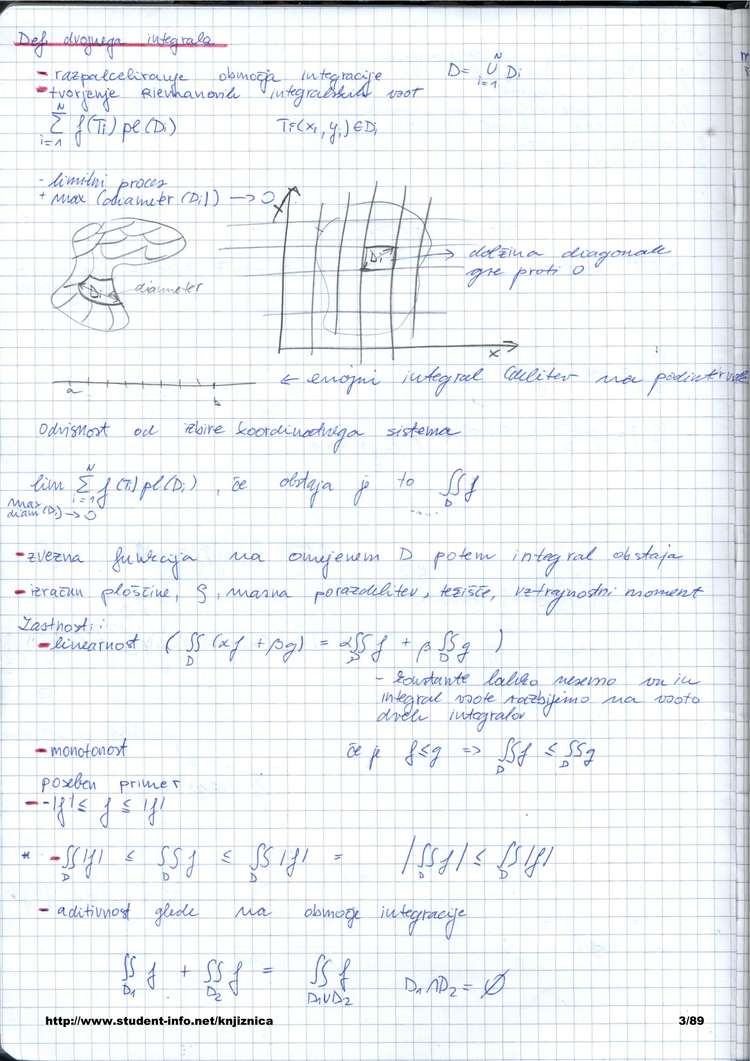 Def. dvojnega integrala
- razpalceliranje območja integracije D = ∪ᵢ₌₁ᴺ Di
- tvorjenje Riemanovih integralskih vsot
∑ᵢ₌₁ᴺ f(Ti) pl(Di) Ti(xi, yi) ∈ Di
- limitni proces
+ max (diameter (Di)) → 0
Di diameter
x Di → dolžina diagonale
gre proti 0
x
a b ← enojni integral (delitev na podintervale
Odvisnost od izbire koordinatnega sistema
lim ∑ᵢ₌₁ᴺ f(Ti) pl(Di), če obstaja je to ∬_D f
max diam(Di) → 0
- zvezna funkcija na omejenem D potem integral obstaja
- izračun ploščine, ρ, masna porazdelitev, težišče, vztrajnostni moment
Lastnosti:
- linearnost (∬_D (αf + βg) = α∬_D f + β∬_D g)
- konstante lahko nesemo ven iz
integral vsote razbijemo na vsoto
dveh integralov
- monotonost če je f ≤ g => ∬_D f ≤ ∬_D g
poseben primer
- -|f| ≤ f ≤ |f|
* -∬_D |f| ≤ ∬_D f ≤ ∬_D |f| = |∬_D f| ≤ ∬_D |f|
- aditivnost glede na območje integracije
∬_D1 f + ∬_D2 f = ∬_D1∪D2 f D1∩D2 = ∅
http://www.student-info.net/knjiznica 3/89